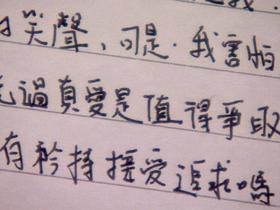 笑聲,可是,我害怕
說過真愛是值得爭取
有矜持接受追求嗎